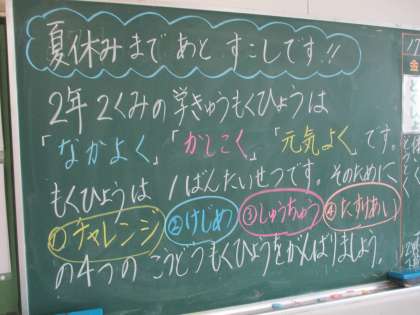 夏休みまであとすこしです!!
2年2くみの学きゅうもくひょうは
「なかよく」「かしこく」「元気よく」です。
もくひょうは1ばんたいせつです。そのために
①チャレンジ ②けじめ ③しゅうちゅう ④たすけあい
の4つのこうどうもくひょうをがんばりましょう。
17
金